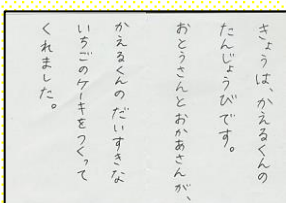 きょうは、かえるくんの
たんじょうびです。
おとうさんとおかあさんが、
かえるくんのだいすきな
いちごのケーキをつくって
くれました。